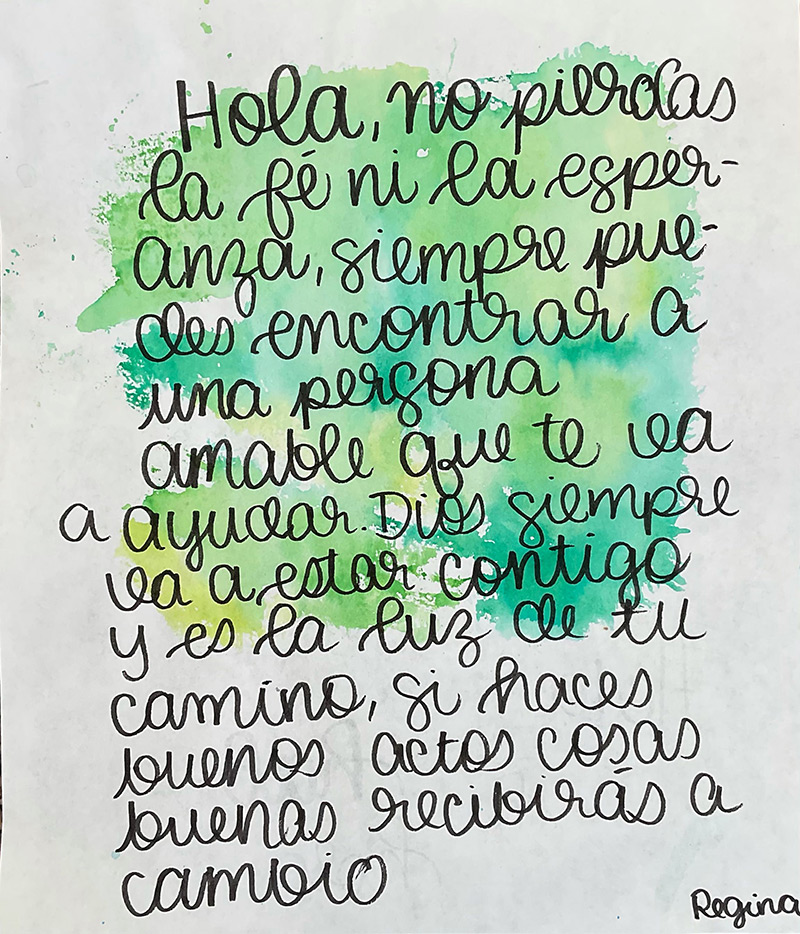 Hola, no pierdas
la fé ni la esper-
anza, siempre pue-
des encontrar a
una persona
amable que te va
a ayudar. Dios siempre
va a estar contigo
y es la luz de tu
camino, si haces
buenos actos cosas
buenas recibirás a
cambio
Regina